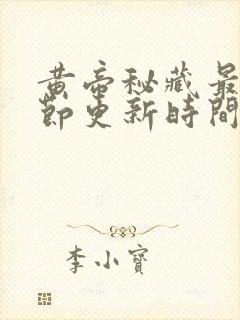 黄帝秘藏最
節更新時間
李小寶